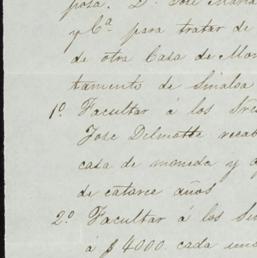 posa. D. José María
y Cª. para tratar de
de otra Casa de Mon
tamento de Sinaloa
1º. Facultar á los Sres
José Delmotte recab
casa de moneda y a
de catorce años
2º. Facultar á los Sres
á $4000 cada uno